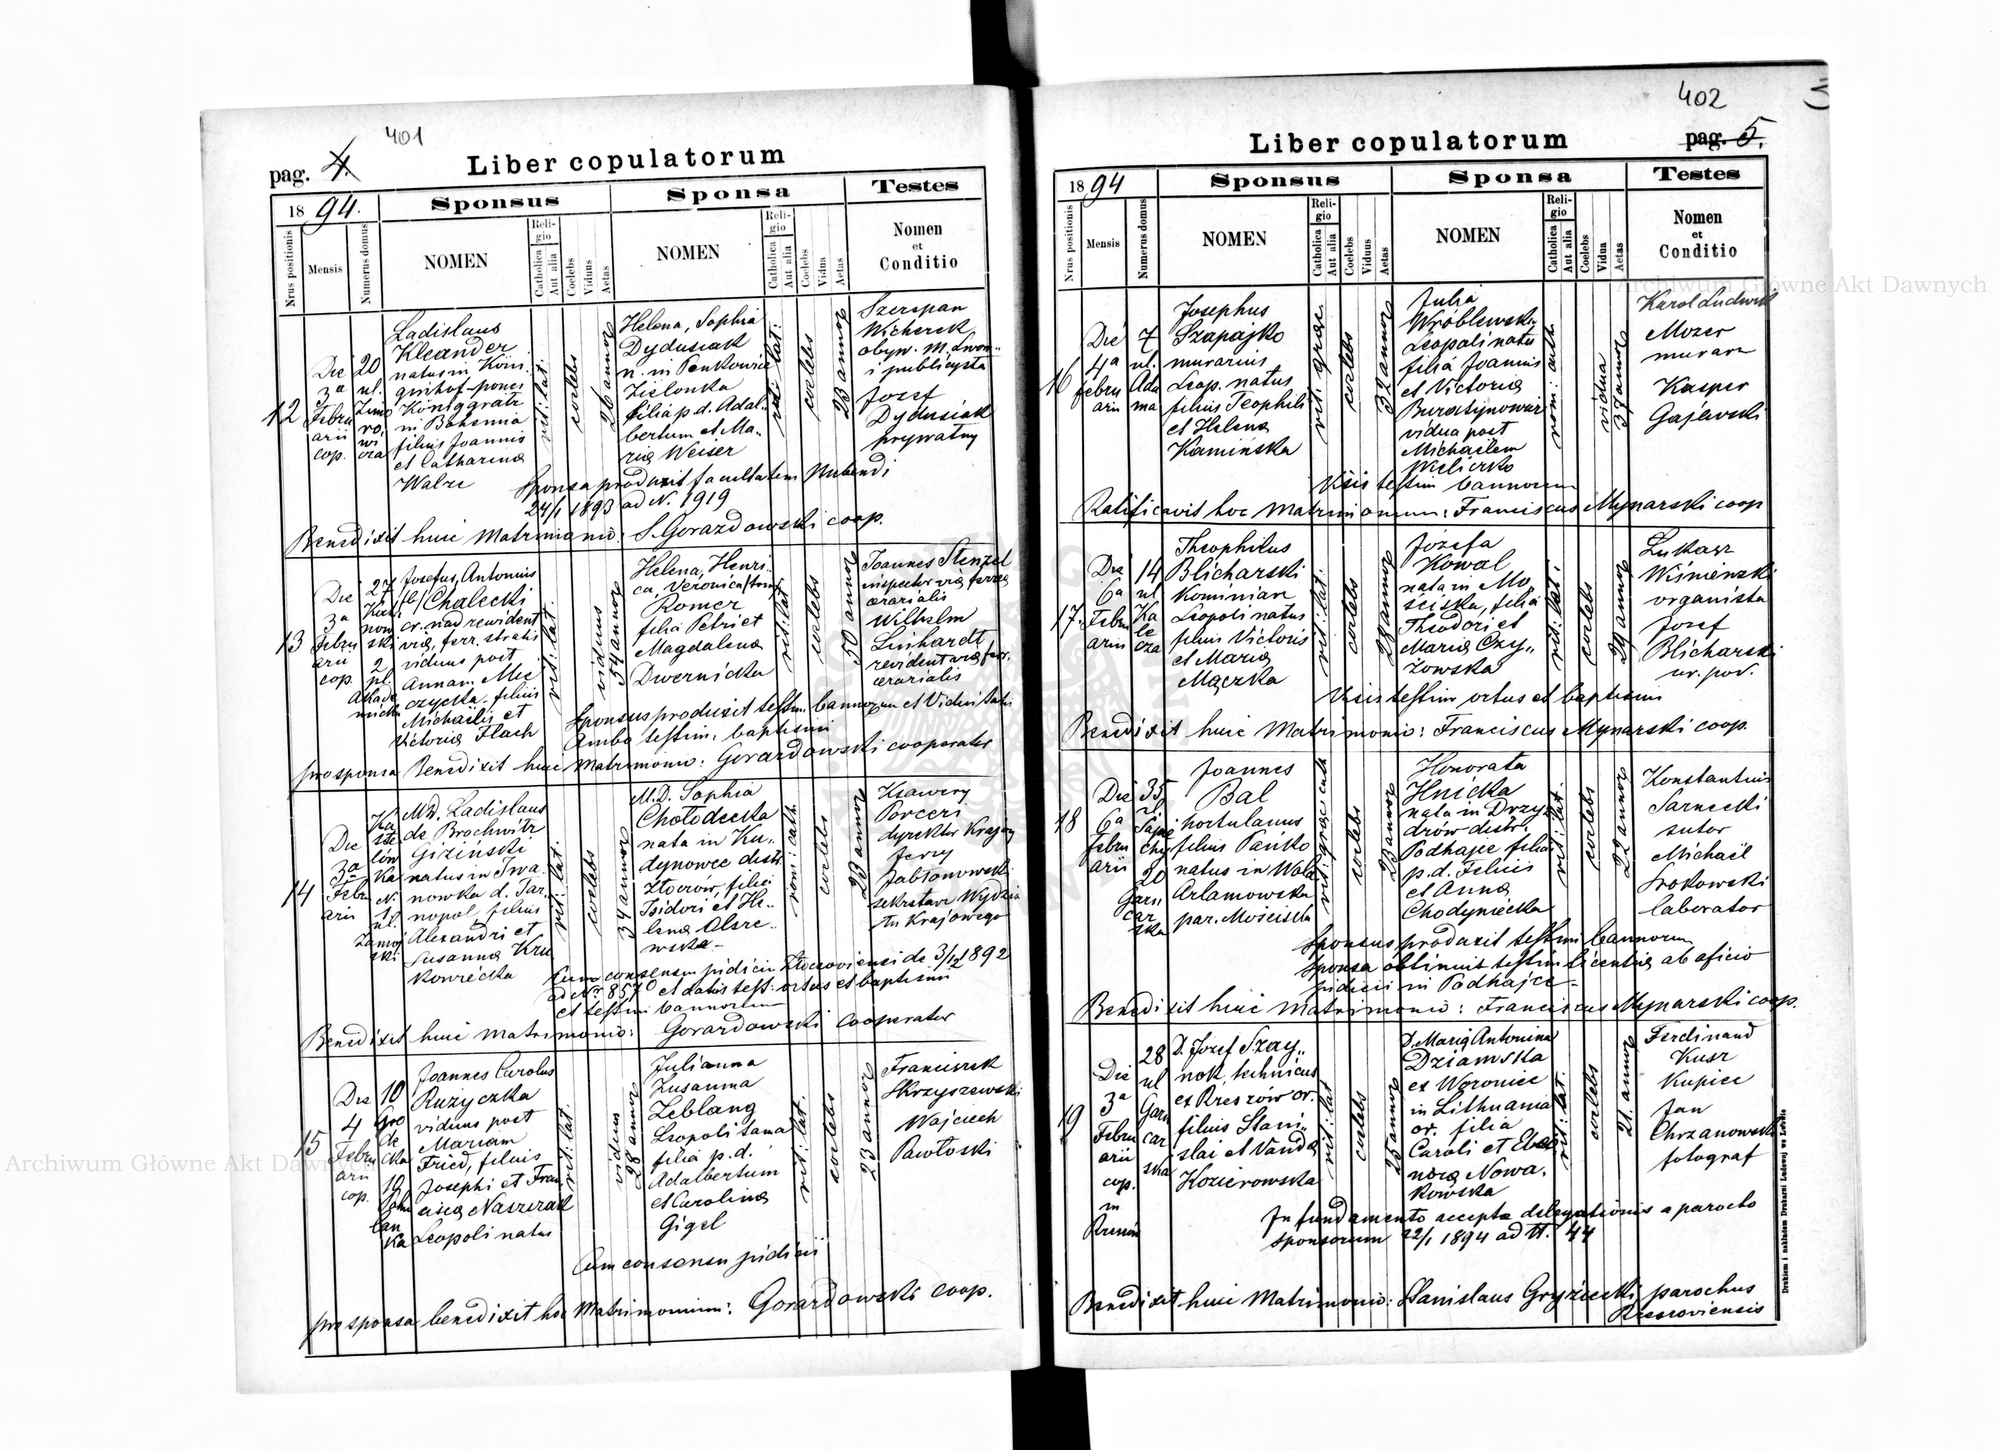 401
pag. 4.
Liber copulatorum
1894.
Sponsus
Sponsa
Testes
Nrus positionis
Mensis
Numerus domus
NOMEN
Reli-
gio
Catholica
Aut alia
Coelebs
Viduus
Aetas
NOMEN
Reli-
gio
Catholica
Aut alia
Coelebs
Vidua
Aetas
Nomen
et
Conditio
12
Die
3a
Febru
arii
cop.
20
ul.
Zimo
ro,
wi
cza
Ladislaus
Kleander
natus in Köni
ginhof-ponei
Königgrätz
in Bohemia
filius Joannis
et Catharina
Walze
rit: lat.
coelebs
26 annor
Helena, Sophia
Dydusiak
n. in Penkowice
Zielonka
filia p. d. Adal-
bertum et Ma-
ria Weiser
rit: lat:
coelebs
23 annor
Szczepan
Wicherek
obyw. m. Lwow-
i publicysta
Jozef
Dydusiak
prywatny
Sponsa produxit facultatem nubendi
24/1 1893 ad N. 1919
Benedixit huic Matrimonio: S. Gorazdowski coop.
13
Die
3a
Febru
arii
cop.
27
2
pl.
Akade
micki
Josefus, Antonius
Chalecki
cr. nad rewident
via, ferr. statis
viduus post
Annam Mie
czycka-filius
Michaelis et
Victoria Flach
rit: lat.
viduus
54 annor
Helena, Henri-
ca, Veronica
Romer
filia Petri et
Magdalena
Dwernicka
rit: lat
coelebs
50 annor
Joannes Stenzel
inspector via ferrea
ærarialis
Wilhelm
Linhardt,
revident via ferr.
ærarialis
Sponsus produxit testim. bannorum et Viduitatis
Ambo testim. baptismi
pro sponsa Benedixit huic Matrimonio: Gorazdowski cooperator
14
Die
3a
Febru
arii
Ka
ste
lów
ka
N.
12
ul.
Zamoj
ski
MD. Ladislaus
de Brochwitz
Giziński
natus in Iwa
nowka d. Tar-
nopol, filius
Alexandri et
Susanna Kru
kowiecka
rit: lat.
coelebs
34 annor
M.D. Sophia
Chołodecka
nata in Ku-
dynowce distr
Złoczów, filia
Isidori et He-
lena Olsze-
wska-
rom: cath.
coelebs
23 annor
Ksawery
Porceri
dyrektor Krajowy
Jerzy
Jabłonowski
sekretarz Wydzia
łu Krajowego
Cum consensu judicii Złoczoviensi de 3/12 1892
ad Nr. 8570 et datis test: ortus et baptismi
et testim bannorum
Benedixit huic Matrimonio: Gorazdowski Cooperator
15
Die
4
Febru
arii
cop.
10
Gro
de
cka
19
lan
ka
Joannes Carolus
Ruzyczka
viduus post
Mariam
Fried, filius
Josephi et Fran
cisca Naszczak
Leopoli natus
rit: lat.
viduus
28 annor
Julianna
Zusanna
Leblang
Leopoli tana
filia p. d.
Adalbertum
et Carolina
Gigel
rit: lat.
coelebs
23 annor
Franciszek
Skrzyszewski
Wojciech
Pawłoski
Cum consensu judicii
pro sponsa benedixit hoc Matrimonium: Gorazdowski coop.
402
Liber copulatorum
pag. 5.
1894
Sponsus
Sponsa
Testes
Nrus positionis
Mensis
Numerus domus
NOMEN
Reli-
gio
Catholica
Aut alia
Coelebs
Viduus
Aetas
NOMEN
Reli-
gio
Catholica
Aut alia
Coelebs
Vidua
Aetas
Nomen
et
Conditio
16
Die
4a
febru
arii
7
ul.
Ada
ma
Josephus
Szapajko
murarius
Leop. natus
filius Teophili
et Helena
Kamińska
rit: graec.
coelebs
32 annor
Julia
Wróblewska
Leopoli nata
filia Joannis
et Victoria
vidua post
Michaelem
Wieliczko
rom: cath
vidua
37 annor
Karol Ludwik
Mozer
murarz
Kasper
Gajewski
Visis testim bannorum
Ratificavit hoc Matrimonium: Franciscus Mynarski coop
17.
Die
6a
Febru
arii
14
ul
Ka
le
cza
Theophilus
Blicharski
Kominiarz
Leopoli natus
filius Victoris
et Maria
Mączka
rit: lat.
coelebs
28 annor
Józefa
Kowal
nata in Mo,
ściska, filia
Theodori et
Maria Czy-
żowska
rit: lat:
coelebs
29 annor
Łukasz
Wiśnienski
organista
Jozef
Blicharski
ur. pow.
Visis testim ortus et baptismi
Benedixit huic Matrimonio: Franciscus Mynarski coop.
18
Die
6a
Febru
arii
35
20
Garn
car
ska
Joannes
Bal
hortulanus
filius Pańko
natus in Wola
Arlamowska
par. Mościska
rit: graec cath
coelebs
23 annor
Honorata
Hnicka
nata in Drzyz
drów distr.
Podhajce filia
p. d. Felicis
et Anna
Chodyniecka
rit: lat.
coelebs
22 annor
Konstantius
Sarnecki
sutor
Michaël
Srokowski
laborator
Sponsus produxit testim bannorum
Sponsa obtinuit testim licentia ab oficio
judicii in Podhajce-
Benedixit huic Matrimonio: Franciscus Mynarski coop.
19
Die
3a
Febru
arii
cop.
in
28
ul
Garn
car
ska
D. Jozef Szay-
nok, technicus
ex Rzeszów or.
filius Stani-
slai et Vanda
Kozierowska
rit: lat
coelebs
25 annor
D. Maria Antonina
Dziamska
ex Woronice
in Lithuania
or. filia
Caroli et Eleo
nora Nowa-
kowska
rit: lat.
coelebs
21. annor
Ferdinand
Kusz
Kupiec
Jan
Chrzanowski
fotograf
In fundamento accepta delegationis a parocho
sponsorum 22/1 1894 ad N. 44
Benedixit huic Matrimonio: Stanislaus Gryziecki parochus
Rzeszoviensis
Drukiem i nakładem Drukarni Ludowej we Lwowie
Archiwum Główne Akt Dawnych
Archiwum Główne Akt Dawnych